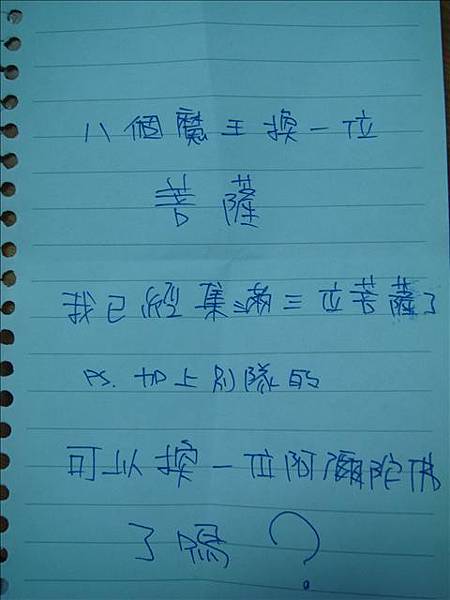 八個魔王換一位
菩薩
我已經集滿三位菩薩了
PS. 加上別隊的
可以換一位阿彌陀佛
了嗎？